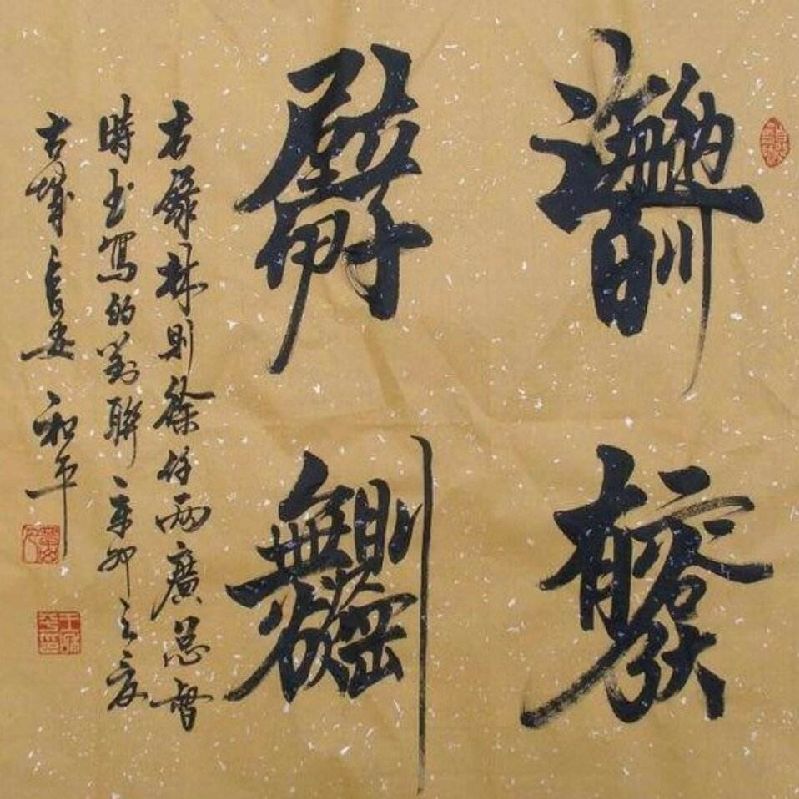 海納百川
有容乃大
壁立千仞
無欲則剛
右錄林則徐任兩廣總督
時書寫的對聯辛卯之夏
古城長安 和平